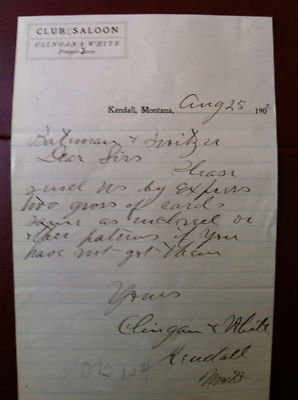 CLUB SALOON
CLINGAN & WHITE
Proprietors
Kendall, Montana, Aug 25 190
Bateman & Switzer
Dear Sirs
Please
send us by Express
two gross of cards
same as inclosed or
other paterns if you
have not got them
Yours
Clingan & White
Kendall
Mont